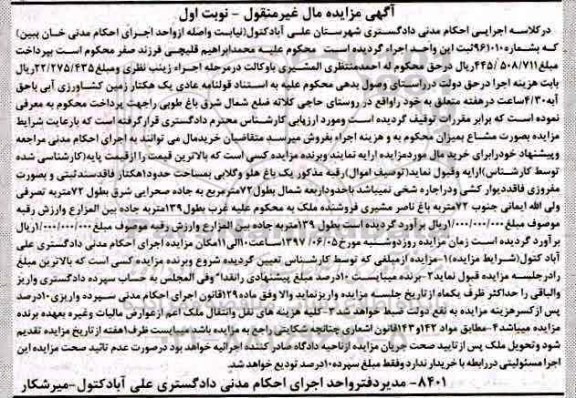 آگهی مزایده مال غیرمنقول - نوبت اول
درکلاسه اجرایی احکام مدنی دادگستری شهرستان علی آبادکتول(نیابت واصله ازواحد اجرای احکام مدنی خان ببین)
که بشماره ۹۶۱۰۱۰ثبت این واحد اجراء گردیده است محکوم علیه محمدابراهیم قلیچی فرزند صفر محکوم است بپرداخت
مبلغ۴۴۵/۵۰۸/۷۱۱ریال درحق محکوم له احمدمنتظری المشیری باوکالت درمرحله اجراء زینب نظری ومبلغ۲۲/۲۷۵/۴۳۵ریال
بابت هزینه اجرا درحق دولت درراستای وصول بدهی محکوم علیه به استناد قولنامه عادی یک هکتار زمین کشاورزی آبی باحق
آبه۴/۳۰ساعت درهفته متعلق به خود راواقع در روستای حاجی کلاته ضلع شمال شرق باغ طوبی راجهت پرداخت محکوم به معرفی
نموده است که برابر مقررات توقیف گردیده است ومورد ارزیابی کارشناس محترم دادگستری قرارگرفته است که بارعایت شرایط
مزایده بصورت مشاع بمیزان محکوم به و هزینه اجراء بفروش میرسد متقاضیان خریدمال می توانند به اجرای احکام مدنی مراجعه
وپیشنهاد خودرابرای خرید مال موردمزایده ارایه نمایند وبرنده مزایده کسی است که بالاترین قیمت را ازقیمت پایه(کارشناسی شده
توسط کارشناس)ارایه وقبول نماید(توصیف اموال)رقبه مذکور یک باغ هلو وگلابی بمساحت حدود۱هکتار فاقدسندثبتی و بصورت
مفروزی فاقددیوار کشی ودراجاره شخی نمیباشد باحدوداربعه شمال بطول۷۲مترمربع به جاده صحرایی شرق بطول ۷۲متربه تصرفی
ولی الله ایمانی جنوب ۷۲متربه باغ ناصر مشیری فروشنده ملک به محکوم علیه غرب بطول۱۳۹متربه جاده بین المزارع وارزش رقبه
موصوف مبلغ۱/۰۰۰/۰۰۰/۰۰۰ریال برآورد گردیده است بطول ۱۳۹متربه جاده بین المزارع وارزش رقبه موصوف مبلغ۱/۰۰۰/۰۰۰/۰۰۰ریال
برآورد گردیده است زمان مزایده روزدوشنبه مورخ۱۳۹۷/۰۶/۰۵ساعت۱۰الی۱۱مکان مزایده اجرای احکام مدنی دادگستری علی
آباد کتول(شرایط مزایده)۱-مزایده ازمبلغی که توسط کارشناس تعیین گردیده شروع وبرنده مزایده کسی است که بالاترین مبلغ
رادرجلسه مزایده قبول نماید۲-برنده میبایست ۱۰درصد مبلغ پیشنهادی رانقدا" وفی المجلس به حساب سپرده دادگستری واریز
والباقی را حداکثر ظرف یکماه ازتاریخ جلسه مزایده واریزنماید والا وفق ماده۱۲۹قانون اجرای احکام مدنی سپرده واریزی۱۰درصد
پس ازکسرهزینه مزایده به نفع دولت ضبط خواهدشد۳-کلیه هزینه های نقل وانتقال ملک اعم ازعوارض مالیات وغیره بعهده برنده
مزایده میباشد۴-مطابق مواد ۱۴۲و۱۴۳قانون اشعاری چنانچه شکایتی راجع به مزایده باشدمیبایست ظرف۱هفته ازتاریخ مزایده تقدیم
شود وتحویل ملک پس ازتایید صحت جریان مزایده ازناحیه دادگاه صادر کننده اجرائیه خواهد بود درصورت عدم تائید صحت مزایده این
اجرا مسئولیتی دررابطه با خریدار ندارد وفقط مبلغ سپرده۱۰درصد تودیع خواهد شد.
۸۴۰۱- مدیردفترواحد اجرای احکام مدنی دادگستری علی آبادکتول-میرشکار